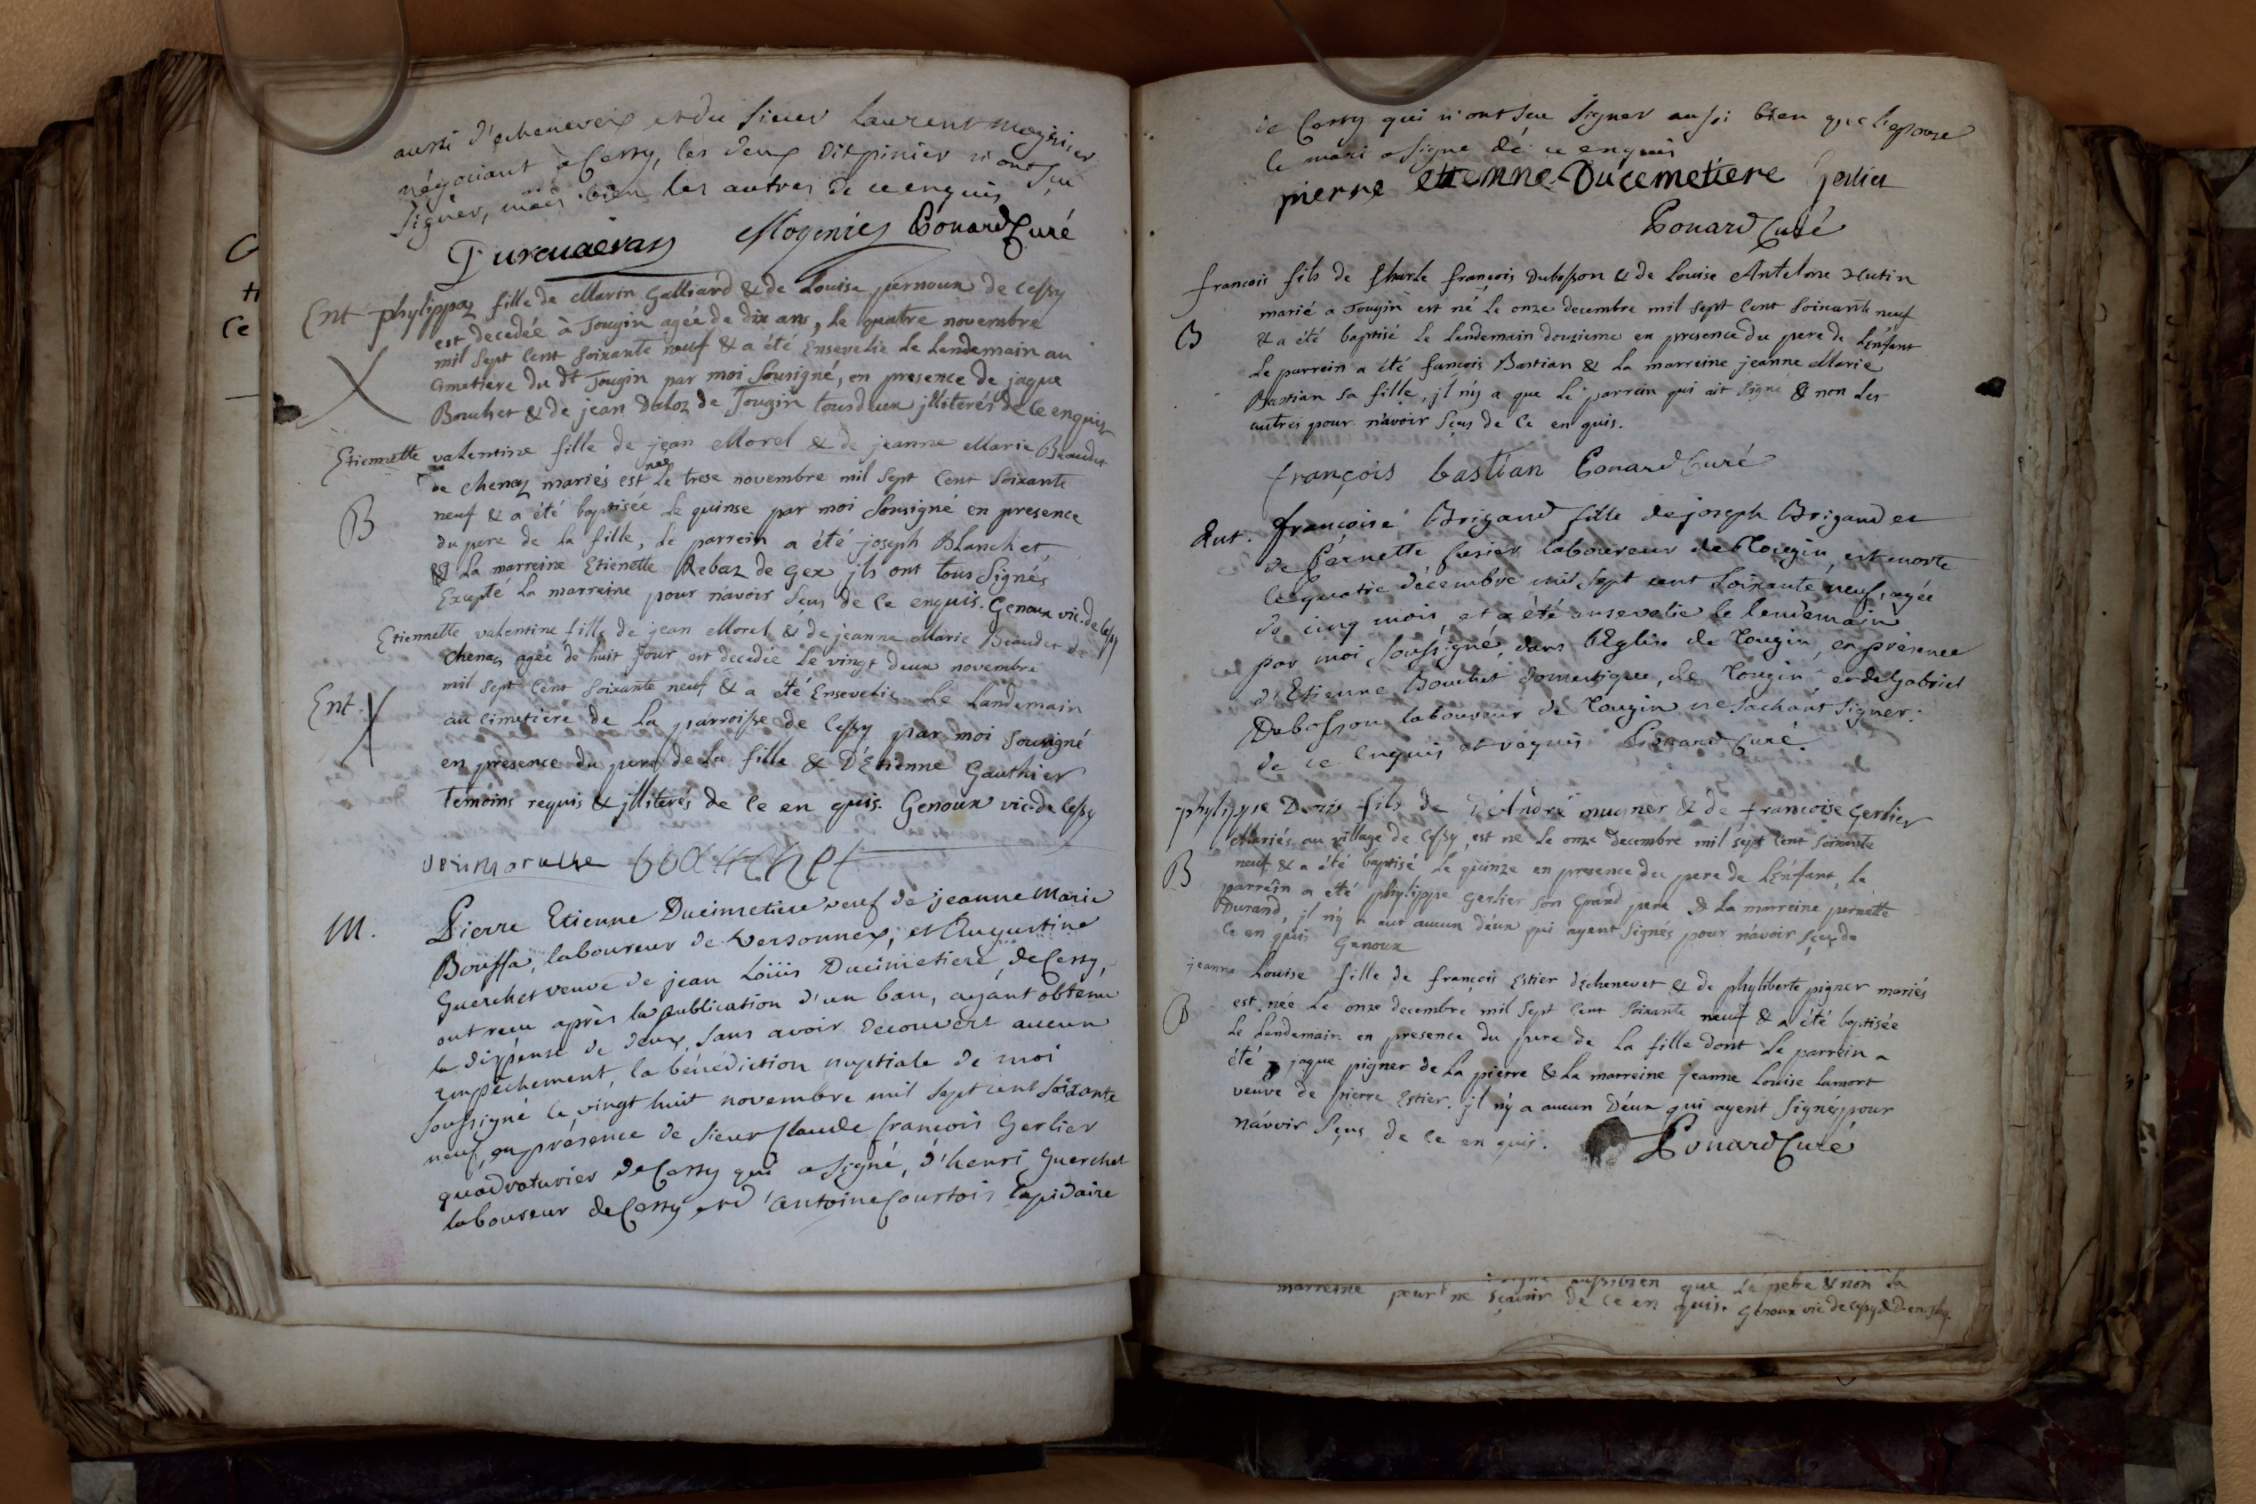 aussi d'echenevex et du sieur Laurent mogenier
négociant à Cessy, les deux Dispinier n'ont sçu
signer, mais bien les autres de ce enquis
Mogenier Gonard Curé
Ent phylippaz fille de Marin Galliard & de Louise pernoux de Cessy
est decedée à Tougin agée de dix ans, le quatre novembre
mil sept Cent soixante neuf & a été Ensevelie Le Lendemain au
Cimetiere du dt Tougin par moi sousigné, en presence de jaque
Bouchet & de jean Duboz de Tougin tous deux jlliterés de ce enquis
Etiennette valentine fille de jean Morel & de jeanne Marie Beaudet
de chenaz mariés est née Le trese novembre mil sept Cent soixante
B
neuf & a été baptisée Le quinse par moi sousigné en presence
du pere de la fille, Le parrein a été joseph Blanchet,
& La marreine Etienette Rebaz de Gex, jls ont tous signés
Excepté La marreine pour n'avoir sçus de ce enquis. Genoux vic. de Cessy
Etiennette valentine fille de jean Morel & de jeanne Marie Beaudet de
chenaz agée de huit jour est decedée Le vingt deux novembre
Ent.
mil sept Cent soixante neuf & a été Ensevelie Le Landemain
au cimetiere de La parroisse de Cessy par moi sousigné
en presence du pere de La fille & D'Etienne Gauthier
Temoins requis & jlliterés de Ce en quis. Genoux vic. de Cessy
M.
Pierre Etienne Ducimetiere veuf de jeanne Marie
Bouffa, laboureur de Versonnex, et Augustine
Guerchet veuve de jean Loüis Ducimetiere, de Cessy,
ont reçu après la publication d'un ban, ayant obtenu
la dispense de deux, sans avoir decouvert aucun
empêchement, la bénédiction nuptiale de moi
soussigné le vingt huit novembre mil sept cent soixante
neuf, en présence de sieur Claude françois Gerlier
quadraturier de Cessy qui a signé, d'henri Guerchet
laboureur de Cessy et d'antoine Courtois lapidaire
de Cessy qui n'ont sçu signer aussi bien que l'epouse
le mari a signé de ce enquis
pierre etienne Ducemetiere Gerlier
Gonard Curé
françois fils de Charle françois Dubosson & de Louise Antelme Hutin
marié a Tougin est né Le onze decembre mil sept Cent soixante neuf
B
& a été baptisé Le Lendemain douzieme en presence du pere de L'Enfant
Le parrein a été françois Bastian & La marreine jeanne Marie
Bastian sa fille, jl n'y a que Le parrein qui ait signé & non Les
autres pour n'avoir sçus de Ce en quis.
françois bastian Gonard Curé
Ent. françoise Brigand fille de joseph Brigand et
de Pernette laboureur de Tougin, est morte
le quatre décembre mil sept cent soixante neuf, agée
de cinq mois, et a été ensevelie le lendemain
par moi soussigné, dans l'Eglise de Tougin, en présence
d'Etienne Bouchet domestique, de Tougin et de Gabriel
Dubosson laboureur de Tougin ne sachant signer.
de ce enquis et requis Gonard Curé.
phylippe Denis fils de D'André mugner & de françoise Gerlier
Mariés au village de Cessy, est né Le onze Decembre mil sept Cent soixante
B
neuf & a été baptisé Le quinze en presence du pere de L'Enfant, Le
parrein a été phylippe Gerlier son Grand pere & La marreine pernette
Durand, jl n'y a eut aucun d'eux qui ayent signés pour n'avoir sçus de
Ce en quis Genoux
jeanne Louise fille de françois Estier d'echenevet & de phyliberte pigner mariés
B
est née Le onze decembre mil sept Cent soixante neuf & a été baptisée
Le Lendemain en presence du pere de La fille dont Le parrein a
été jaque pigner de La pierre & La marreine jeanne Louise Lamort
veuve de pierre Estier. jl n'y a aucun D'eux qui ayent signés pour
n'avoir sçus de Ce en quis. Gonard Curé
aussibien que Le pere & non La
marreine pour ne sçavoir de Ce en quis. Genoux vic de Cessy